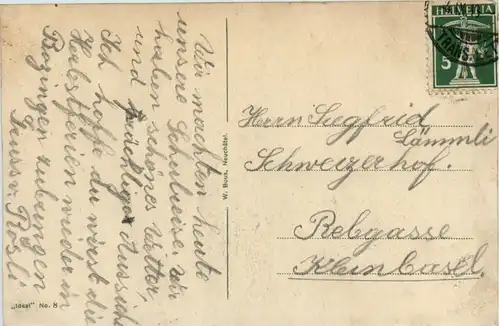 Wir machten heute
unsere Schulreise. Wir
haben schönes Wetter,
und Aussicht
Ich hoffe du wirst die
Herbstferien wieder in
zubringen
Gruss v. Rösli
W. Bous, Neuchâtel.
„Ideal" No. 8
HELVETIA
5
TRANS
Herrn Siegfried
Lämmli
Schweizerhof.
Rebgasse
Kleinbasel.